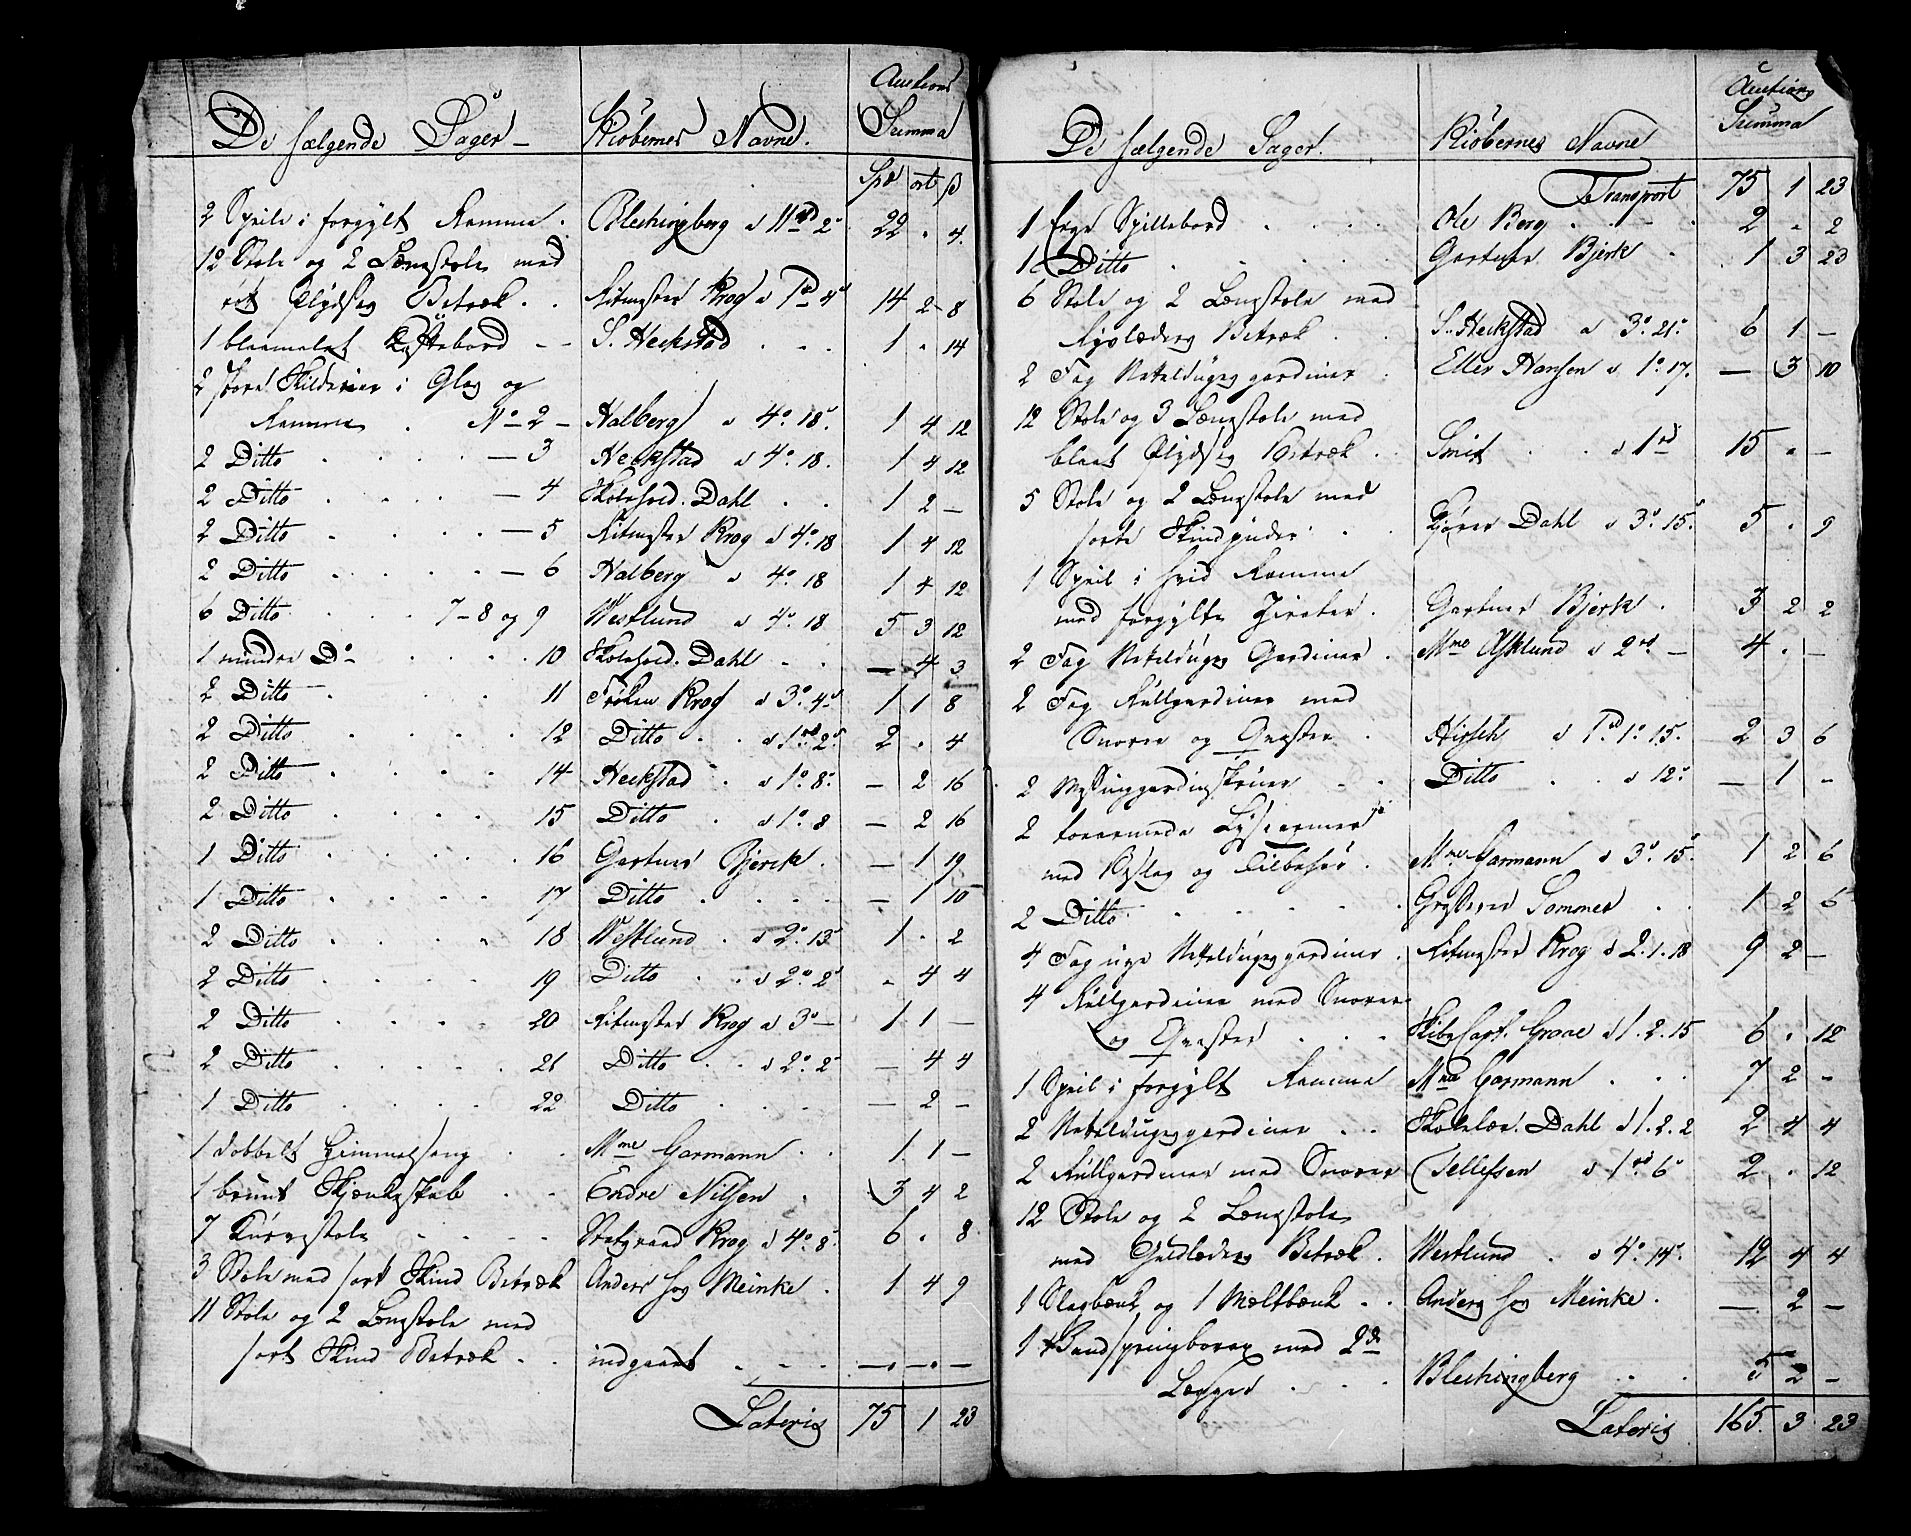 De sælgende Sager
Kiøbernes Navne.
Auctions Summa
Spe ort ß
2 Speile i forgylt Ramme . Blechingberg a 11rd 2s 22 . 4.
12 Stole og 2 Lænestole med
rødt Plydses Betræk . . Ritmester Krog a 1rd 4s 14 2 8
1 blaamalet Kistebord – – S. Heckstad . . . 1 . 14
2 store Skilderier i Glas og
Ramme . No 2 – Halberg a 4o 18s. 1 4 12
2 Ditto . . . . – 3 Heckstad a 4o. 18. 1 4 12
2 Ditto . . . . – 4 Skolehold. Dahl . . 1 2 –
2 Ditto . . . . – 5 Ritmester Krog a 4o. 18 1 4 12
2 Ditto . . . . – 6 Halberg a 4o 18 1 4 12
6 Ditto . . . 7–8 og 9 Westlund a 4o. 18 5 3 12
1 mindre Do . . . . 10 Skolehold. Dahl . . – 4 3
2 Ditto . . . . 11 Frøken Krog a 3o. 4s 1 1 8
2 Ditto . . . . 12 Ditto . . a 1rd 2s. 2 . 4
2 Ditto . . . . 14 Heckstad . a 1o 8s. – 2 16
2 Ditto . . . . 15 Ditto . a 1o. 8 – 2 16
1 Ditto . . . . 16 Gartner Bjerck . – 1 19
1 Ditto . . . . 17 Ditto . . . . – 1 10
2 Ditto . . . . 18 Westlund . a 2o. 13s 1 . 2
2 Ditto . . . . 19 Ditto . . a 2o. 2s . 4 4
2 Ditto . . . . 20 Ritmester Krog a 3o – 1 1 –
2 Ditto . . . . 21 Ditto . . a 2o. 2s – 4 4
1 Ditto . . . . 22 Ditto . . . – 2 –
1 dobbelt Himmelseng . . Mme Garmann . . 1 1 –
1 brunt Skjænkeskab . . Endre Nilsen . 3 4 2
7 Kurvestole . . . . Statsraad Krog a 4o 8s. 6 . 8
3 Stole med sort Skind Betræk Anders hos Meinke . 1 4 9
11 Stole og 2 Lænestole med
sort Skind Betræk . . indgaaet . . . –.–.–
Lateris 75 1 23
De sælgende Sager.
Kiøbernes Navne
Auctions Summa
Transport 75 1 23
1 Spillebord . . . . Ole Berg . . . . 2 . 2
1 Ditto . . . . . Gartner Bjerk . . 1 3 23
6 Stole og 2 Lænestole med
Ryslæders Betræk . . S. Heckstad a 3o. 21s. 6 1 –
2 Fag Neteldugs gardiner . Eller Hansen a 1o 17. – 3 10
12 Stole og 3 Lænestole med
blaat Plydses Betræk . Smit . . a 1rd 15 . –
5 Stole og 2 Lænestole med
sorte Skindpuder . . Dahl a 3o 15s. 5 . 9
1 Speil i hvid Ramme
med forgylte Zirater . Gartner Bjerk . 3 2 2
2 Fag Neteldugs Gardiner . Mme Asklund a 2rd – 4 . –
2 Fag Rullgardiner med
Snorer og Qvaster . Hirsch a 1rd 1o. 15. 2 3 6
2 Messinggardinskruer . . Ditto . . a 12s – 1 –
2 toearmede Lysearmer
med Beslag og Tilbehør . Mme Garmann a 3o 15s. 1 2 6
2 Ditto . . . . . Sommer . . 1 2 6
4 Fag nye Neteldugs gardiner . Ritmester Krog a 2. 1. 18 9 2 –
4 Rullgardiner med Snorer
og Qvaster . . . Skibs Capt. Graae a 1. 2. 15 6 . 12
1 Speil i forgylt Ramme Mme Garmann . . . 7 2 –
2 Neteldugsgardiner . . . Skolelær. Dahl a 1. 2. 2 2 4 4
2 Rullgardiner med Snorer Tellefsen a 1rd 6s 2 . 12
12 Stole og 2 Lænestole
med Guldlæders Betræk . Westlund . a 4o. 14s. 12 4 4
1 Slagbænk og 1 Mæltbænk . . Anders hos Meinke . – 2 –
1 med 2de
Lægger . . . Blechingberg . . 5 2 –
Lateris 165. 3 23